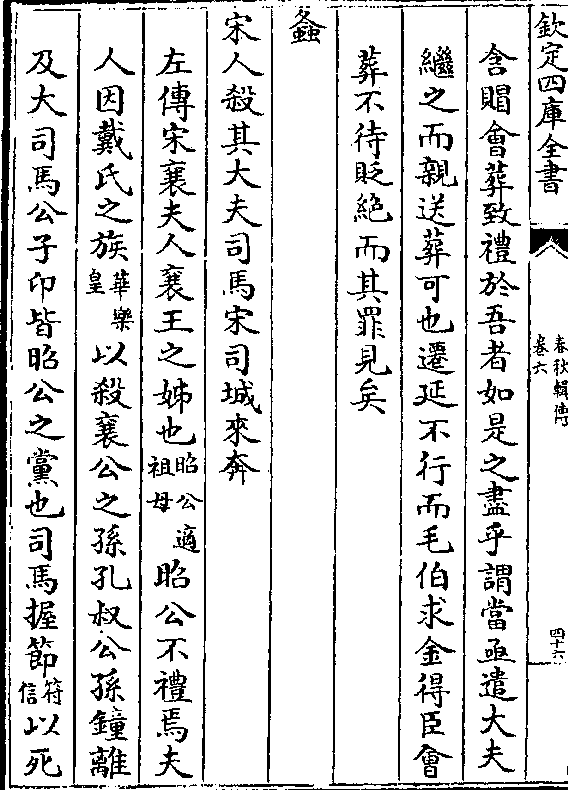 欽定四庫全書
春秋輯傳
卷六
四十六
含賵會葬致禮於吾者如是之盡乎謂當亟遣大夫
繼之而親送葬可也遷延不行而毛伯求金得臣會
葬不待貶絶而其罪見矣
螽
宋人殺其大夫司馬宋司城來奔
左傳宋襄夫人襄王之姊也昭公適祖母昭公不禮焉夫
人因戴氏之族華樂皇以殺襄公之孫孔叔公孫鐘離
及大司馬公子印皆昭公之黨也司馬握節符信以死